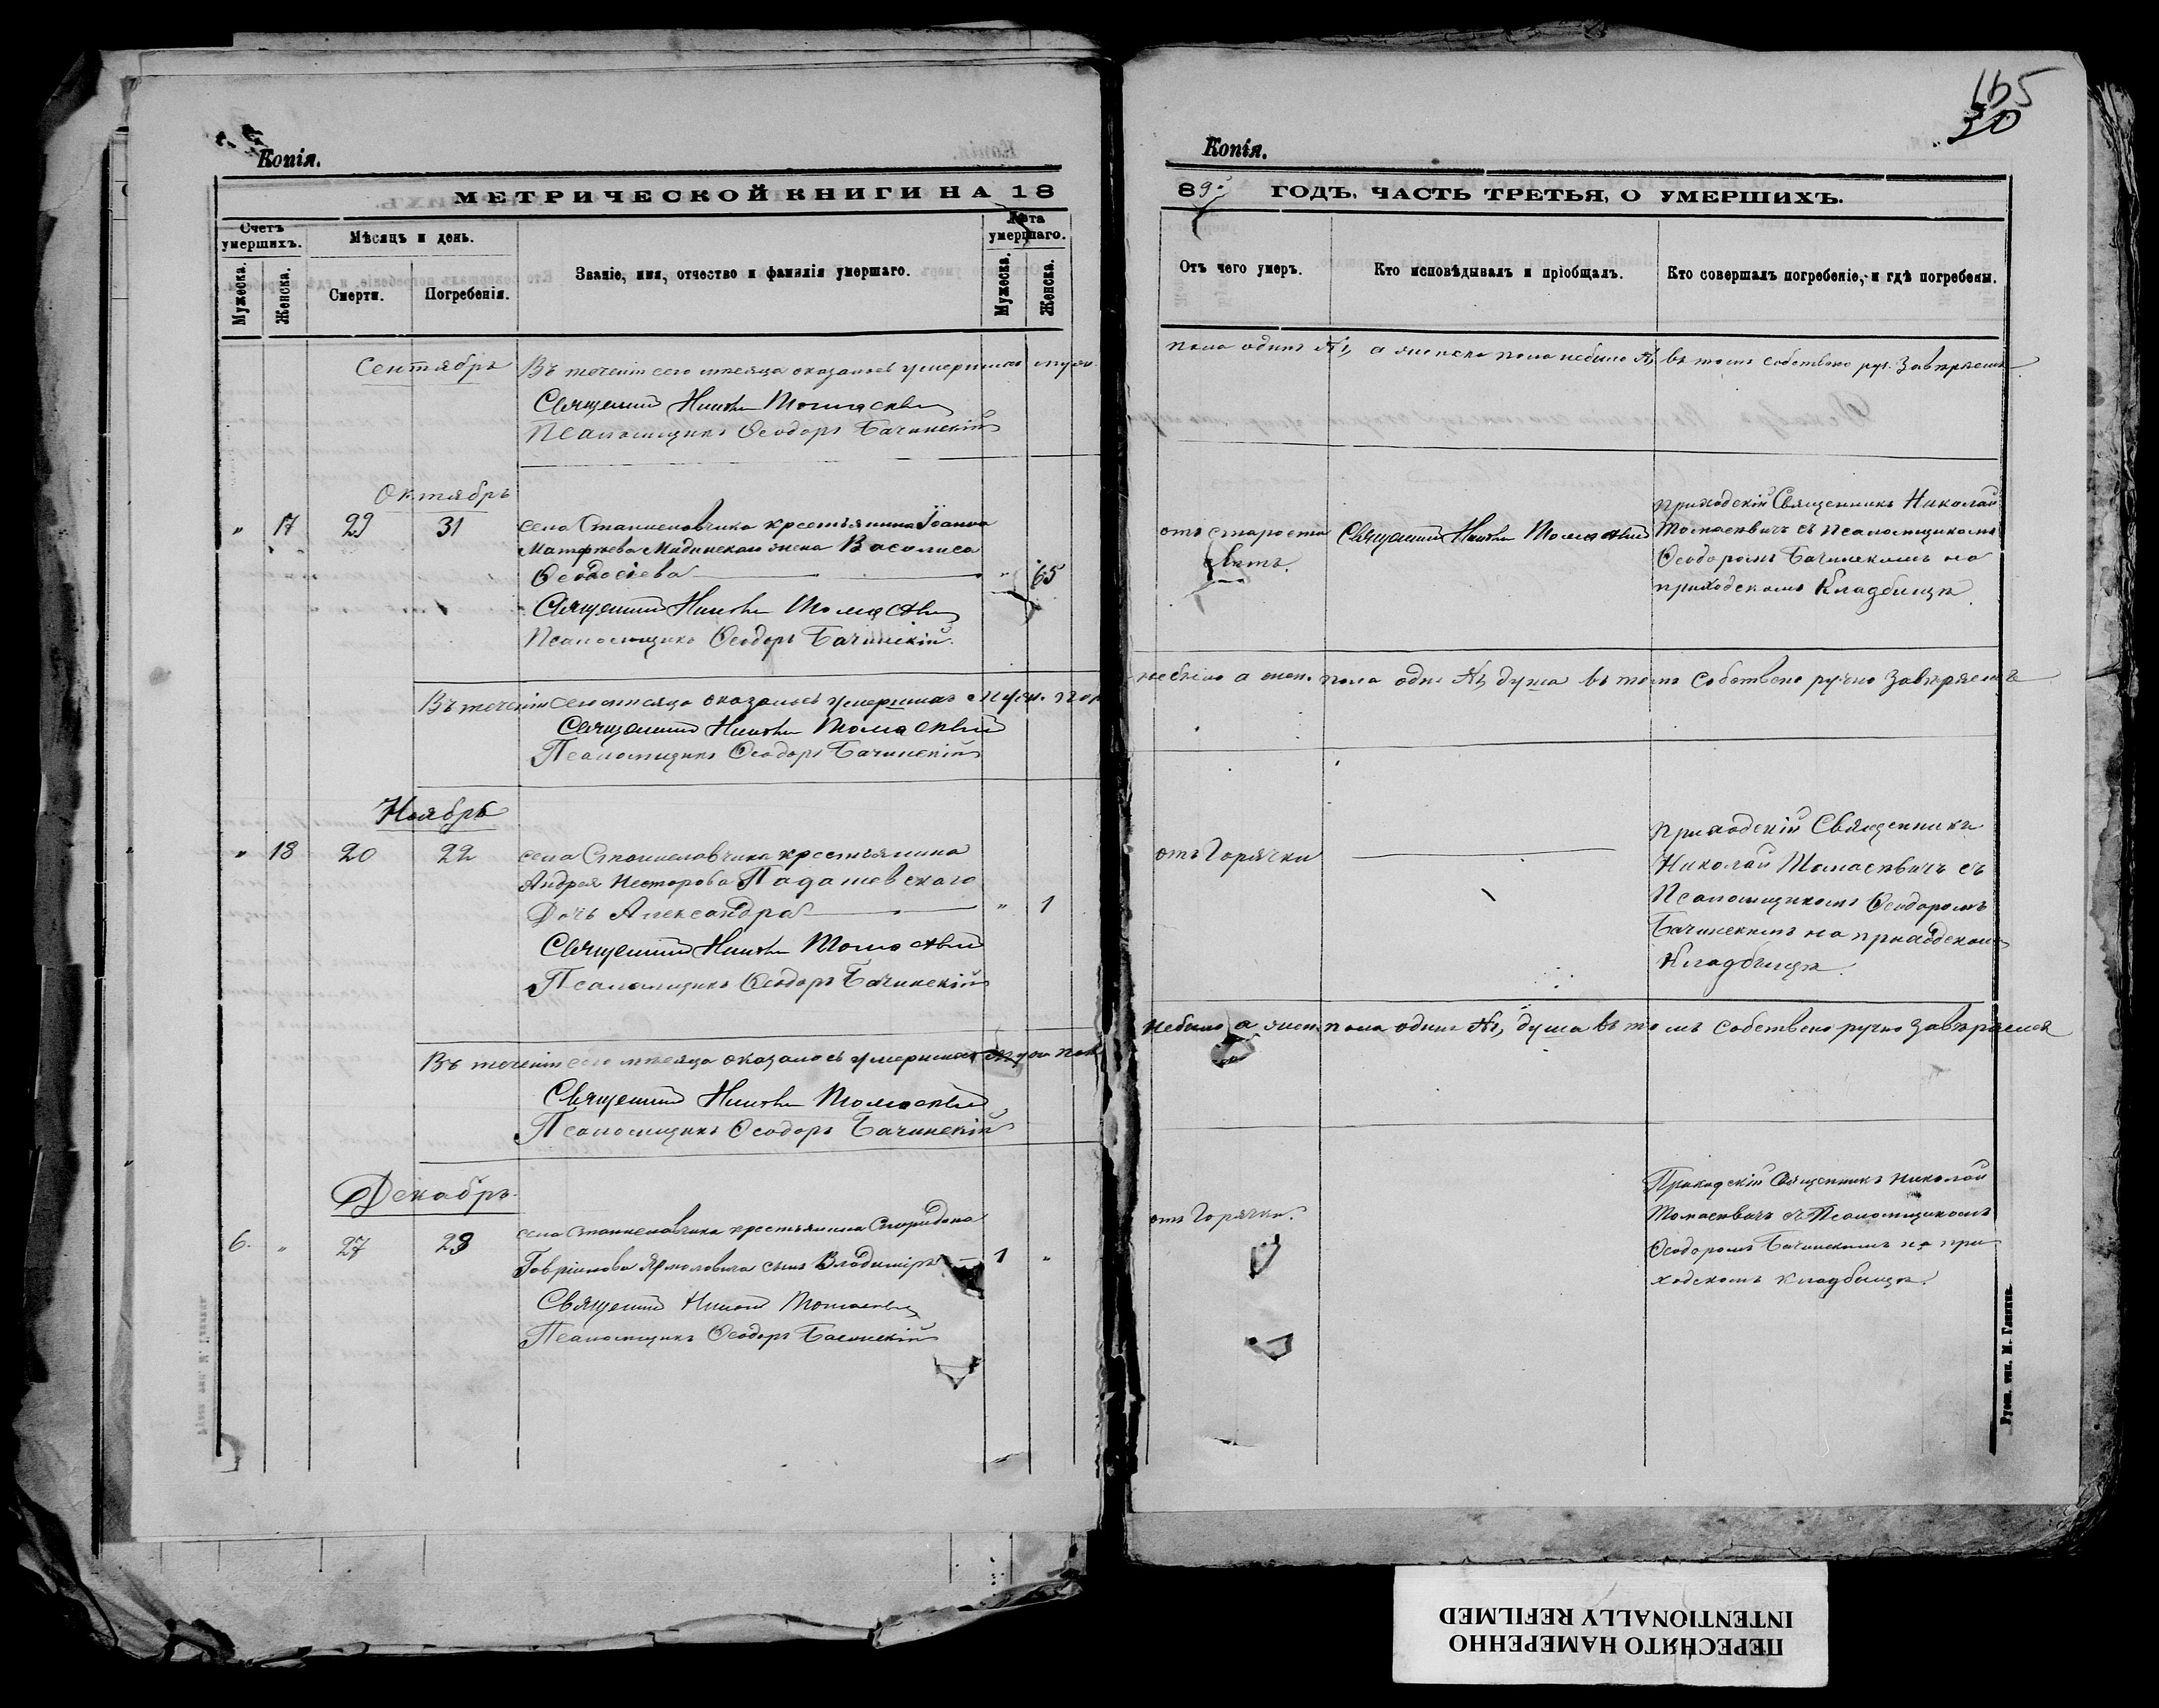 165
30
Копія.
МЕТРИЧЕСКОЙ КНИГИ НА 18
Счетъ умершихъ.
Мѣсяцъ и день.
Званіе, имя, отчество и фамилія умершаго.
Лѣта умершаго.
Мужеска.
Женска.
Смерти.
Погребенія.
Мужеска.
Женска.
Сентябрь
Въ теченіи сего мѣсяца оказалось умершихъ муж.
Священникъ Николай Томасевич
Псаломщикъ Ѳеодоръ Бачинскій
Октябрь
" 17 29 31 села Станиславчика крестьянина Іоанна
Матфѣева жена Василиса
Ѳеодосіева " 65
Священникъ Николай Томасевич
Псаломщикъ Ѳеодоръ Бачинскій
Въ теченіи сего мѣсяца оказалось умершихъ муж. пола
Священникъ Николай Томасевич
Псаломщикъ Ѳеодоръ Бачинскій
Ноябрь
" 18 20 22 села Станиславчика крестьянина
Андрея Несторова Падашевскаго
Дочь Александра " 1
Священникъ Николай Томасевич
Псаломщикъ Ѳеодоръ Бачинскій
Въ теченіи сего мѣсяца оказалось умершихъ муж. пол
Священникъ Николай Томасевич
Псаломщикъ Ѳеодоръ Бачинскій
Декабрь
6. " 27 28 села Станиславчика крестьянина Спиридона
Гавріилова Ярмоловича сынъ Владиміръ 1 "
Священникъ Николай Томасевич
Псаломщикъ Ѳеодоръ Бачинскій
Копія.
89 ГОДЪ, ЧАСТЬ ТРЕТЬЯ, О УМЕРШИХЪ.
Отъ чего умеръ.
Кто исповѣдывалъ и пріобщалъ.
Кто совершалъ погребеніе, и гдѣ погребены.
пола одинъ №1, а женска пола небыло въ томъ собствено руч. Завѣряемъ
отъ старости
лѣтъ.
Священникъ Николай Томасевич
приходскій Священникъ Николай
Томасевичъ съ Псаломщикомъ
Ѳеодоромъ Бачинскимъ на
приходскомъ Кладбищѣ
небыло а жен. пола одна №1, душа въ томъ собствено ручно Завѣряемъ
отъ Горячки
приходскій Священникъ
Николай Томасевичъ съ
Псаломщикомъ Ѳеодоромъ
Бачинскимъ на приходскомъ
Кладбищѣ.
небыло а жен. пола одна №1, душа въ томъ собствено ручно Завѣряемъ
отъ Горячки.
Приходскій Священникъ Николай
Томасевичъ съ Псаломщикомъ
Ѳеодоромъ Бачинскимъ на при
ходскомъ кладбищѣ.
Русск. тип. М. Гликмъ
ПЕРЕСНЯТО НАМЕРЕННО
INTENTIONALLY REFILMED